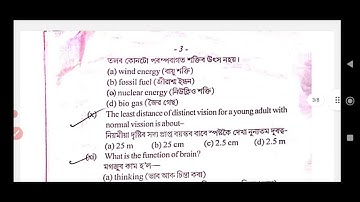 - 3 -
তলৰ কোনটো পৰম্পৰাগত শক্তিৰ উৎস নহয়।
(a) wind energy (বায়ু শক্তি)
(b) fossil fuel (জীৱাশ্ম ইন্ধন)
(c) nuclear energy (নিউক্লিও শক্তি)
(d) bio gas (জৈৱ গেছ)
(x) The least distance of distinct vision for a young adult with
normal vission is about-
নিয়মীয়া দৃষ্টিৰ সদ্য প্ৰাপ্ত বয়স্কৰ বাবে স্পষ্টকৈ দেখা ন্যূনতম দূৰত্ব-
(a) 25 m (b) 25 cm (c) 2.5 cm (d) 2.5 m
(xi) What is the function of brain?
মগজুৰ কাম হ'ল—
(a) thinking (ভাব আৰু চিন্তা কৰা)
3/8